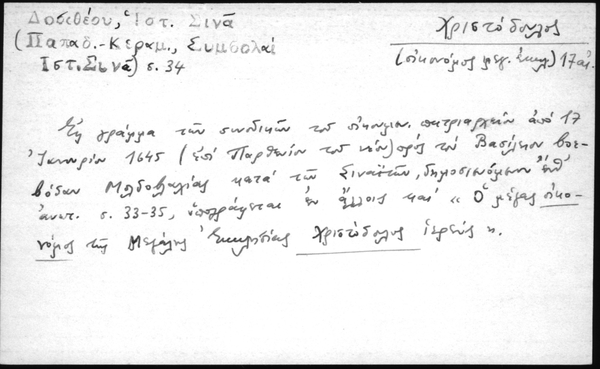 Δοσιθέου, Ἱστ. Σινᾶ
(Παπαδ.-Κεραμ., Συμβολαὶ
Ἱστ. Σινᾶ) σ. 34
Χριστόδουλος
(οἰκονόμος μεγ. Ἐκκλ.) 17 αἰ.
Εἰς γράμμα τῶν συνοδικῶν τοῦ οἰκουμεν. πατριαρχείου ἀπὸ 17
Ἰανουρίου 1645 (ἐπὶ Παρθενίου τοῦ νέου) πρὸς τὸν Βασίλειον βοε-
βόδαν Μολδοβλαχίας κατὰ τῶν Σιναϊτῶν, δημοσιευόμενον ἐνθ᾽
ἀνωτ. σ. 33-35, ὑπογράφεται ἐν ἄλλοις καὶ « Ὁ μέγας οἰκο-
νόμος τῆς Μεγάλης Ἐκκλησίας Χριστόδουλος ἱερεύς ».